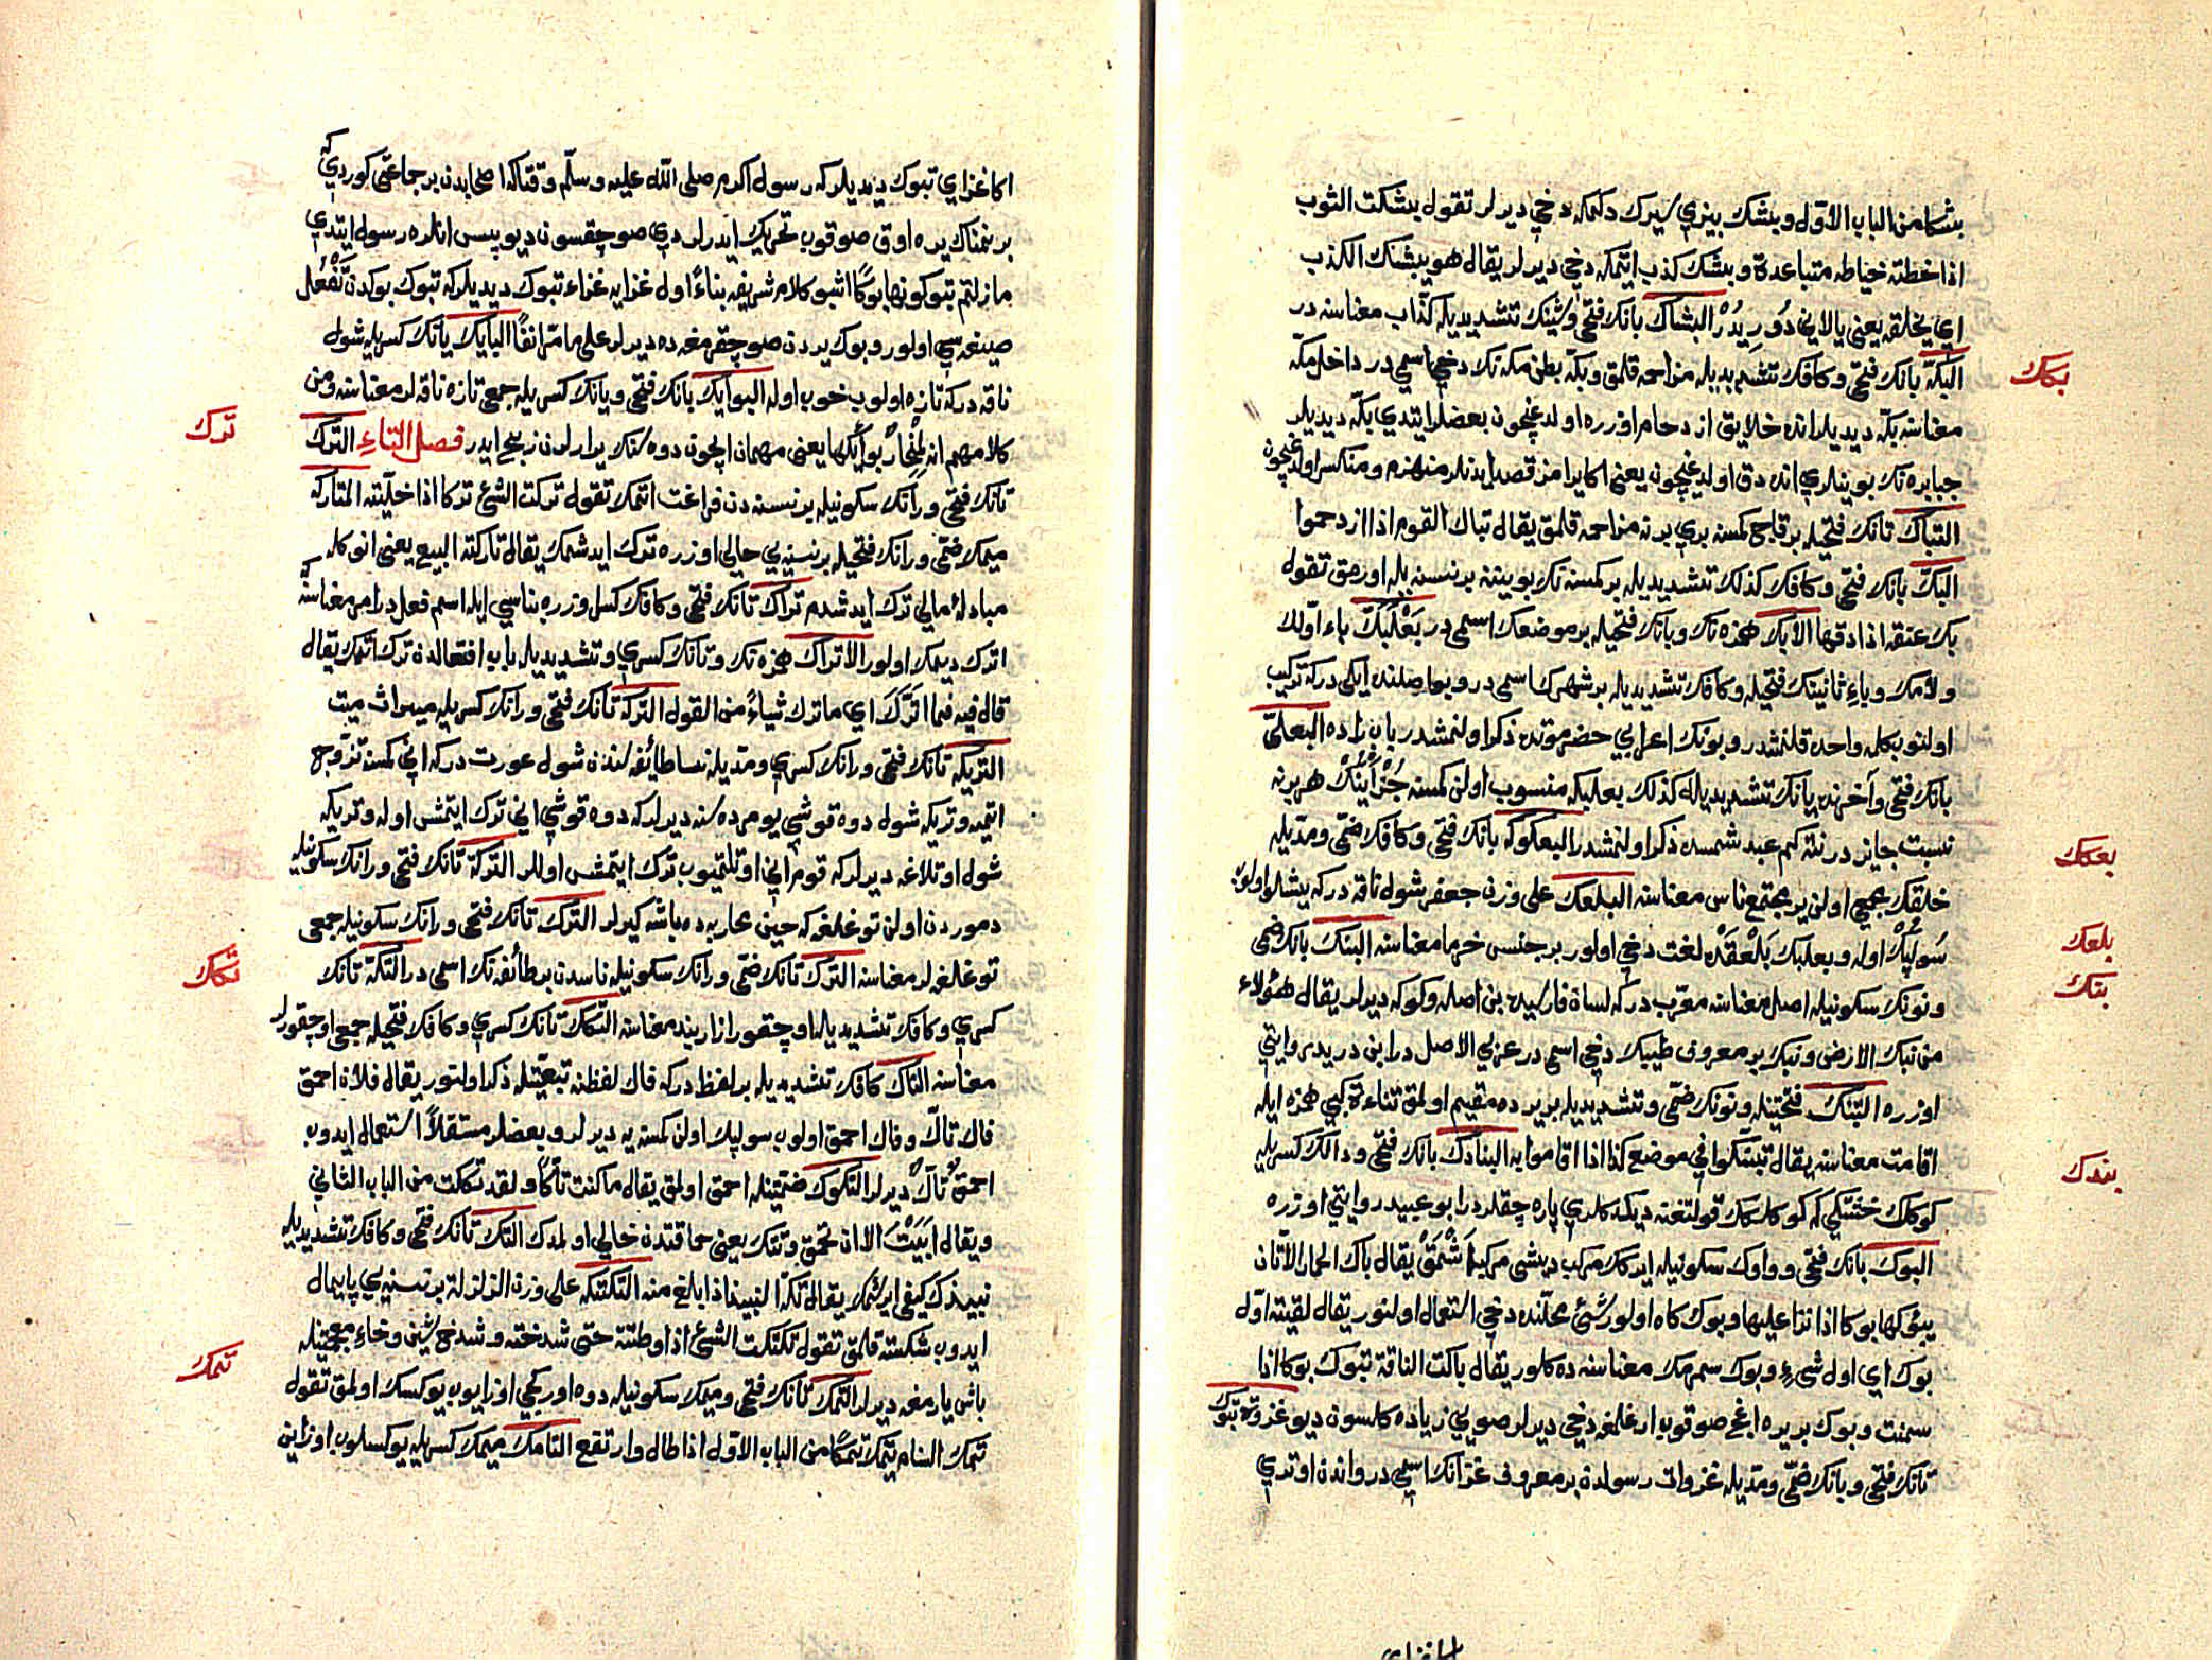 بشكا من الباب الاول وبشك بيزي سيرك دكمكه دخي ديرلر تقول بشكت الثوب
اذا خطته خياطه متباعدة وبشك كذب اتمكه دخي ديرلر يقال هو يبشك الكذب
اي يخلقه يعني يالاني دوريدر البشاك بانك فتحي وشينك تشديديله كذاب معناسنه در
البكة بانك فتحي وكافك تشديديله مزاحمه قلمق وبكة بطن مكه نك دخي اسمي در داخل مكه
معناسنه بكه ديديلر انده خلايق ازدحام اوزره اولدغيچون بعضلر ايتدي بكه ديديلر
جبابره نك بوينلري انده دق اولدغيچون يعني اكا يرامز قصد ايدنلر منهزم ومنكسر اولدغيچون
التباك تانك فتحيله بر قاچ كمسنه بري برنه مزاحمه قلمق يقال تباك القوم اذا ازدحموا
البك بانك فتحي وكافك كذلك تشديديله بر كمسنه نك بويننه بر نسنه يله اورمق تقول
بك عنقه اذا دقها الابك همزه نك وبانك فتحيله بر موضعك اسمي در بعلبك باء اولك
ولامك وباء ثانينك فتحيله وكافك تشديديله بر شهرك اسمي در وبو اصلنده ايكي در كه تركيب
اولنوب كلمه واحده قلنمشدر وبونك اعرابي حضرموتده ذكر اولنمشدر باب زاده البعلي
بانك فتحي وآخرنده يانك تشديديله كذلك بعلبكه منسوب اولن كمسنه جزأينك هر برنه
نسبت جايزدر نته كم عبد شمسده ذكر اولنمشدر البعكوكه بانك فتحي وكافك ضمي ومديله
خلقك جمعي اولن ير مجتمع ناس معناسنه البلعك على وزن جعفر شول ناقه در كه يبشلو اولوب
سولپك اوله وبعلبك بلعقده لغت دخي اولور بر جنس خرما معناسنه البنك بانك ضمي
ونونك سكونيله اصل معناسنه معرب در كه لسان فارسيده بن اصله وكوكه ديرلر يقال هؤلاء
من بنك الارض وبنك بر معروف طيبك دخي اسمي در عربي الاصل در ابن دريد روايتي
اوزره التبنك فتحتينله ونونك ضمي وتشديديله بر يرده مقيم اولمق تناءة كبي همزه ايله
اقامت معناسنه يقال تبنكوا في موضع كذا اذا اقاموا به البنادك بانك فتحي ودالك كسريله
كوكلك ختتكي كه كوكلكك قولتغنه ديكدكلري پاره چقلردر ابو عبيد روايتي اوزره
البوك بانك فتحي وواوك سكونيله ايدكك مركب ديشي مركبه آشمق يقال باك الحمار الاتان
يبوكها بوكا اذا نزا عليها وبوك كاه اولور شئ محلنده دخي استعمال اولنور يقال لقيته اول
بوك اي اول شيء وبوك سمرمك معناسنه ده كلور يقال باكت الناقة تبوك بوكا اذا
سمنت وبوك بر يره اغج صوقوب ارغلمغه دخي ديرلر صويي زياده كلسون ديو غزوة تبوك
تانك فتحي وبانك ضمي ومديله غزوات رسولدن بر معروف غزانك اسمي در واندن اوتري
بكك
بعكك
بلعك
بنك
بندك
اكا غزاي
اكا غزاي تبوك ديديلر كه رسول اكرم صلى الله عليه وسلم وقتاكه اصحابدن بر جماعتي كوردي كه
بر نمناك يره اوق صوقوب تحريك ايدرلردي صو چقسون ديو پس انلره رسول ايتدي
ما زلتم تبوكونها بوكا اشبو كلام شريفه بناء اول غزايه غزاء تبوك ديديلر كه تبوك بوكدن تفعل
صيغه سي اولور وبوك يردن صو چقرمغه ده ديرلر على ما مر انفا البايك يانك كسريله شول
ناقه در كه تازه اولوب خوب اوله البوايك بانك فتحي ويانك كسريله جمعي تازه ناقه لر معناسنه ومن
كلامهم انه لمنحار بوايكها يعني مهمان ايچون دوه سنك يرارلرن ذبح ايدر فصل التاء الترك
تانك فتحي ورانك سكونيله بر نسنه دن فراغت اتمك تقول تركت الشئ تركا اذا خليته المتاركه
ميمك ضمي ورانك فتحيله بر نسنه يي حالي اوزره ترك ايدشمك يقال تاركته البيع يعني انوكله
مبادله مالي ترك ايدشدم تراك تانك فتحي وكافك كسر اوزره بناسي ايله اسم فعل در امر معناسنه
اترك ديمك اولور الاتراك همزه نك وتانك كسري وتشديديله باب افتعالدن ترك اتمك يقال
قال فيه فما اترك اي ما ترك شياء من القول التركة تانك فتحي ورانك كسريله ميراث ميت
التريكه تانك فتحي ورانك كسري ومديله نسا طائفه سندن شول عورت در كه اني كمسنه تزوج
اتميه وتريكه شول دوه قوشي يومرده سنه ديرلر كه دوه قوشي اني ترك ايتمش اوله وتريكه
شول اوتلاغه ديرلر كه قوم اني اوتلتميوب ترك ايتمش اوللر التركة تانك فتحي ورانك سكونيله
دموردن اولن توغلغه كه حين محاربه ده باشه كيرلر الترك تانك فتحي ورانك سكونيله جمعي
توغلغه لر معناسنه الترك تانك ضمي ورانك سكونيله ناسدن بر طائفه نك اسمي در التكة تانك
كسري وكافك تشديديله اوچقور ازار بند معناسنه التكك تانك كسري وكافك فتحيله جمعي اوچقورلر
معناسنه التاك كافك تشديديله بر لفظ در كه فاك لفظنه تبعيتله ذكر اولنور يقال فلان احمق
فاك تاك وفاك احمق اولوب سولپك اولن كمسنه يه ديرلر وبعضلر مستقلا استعمال ايدوب
احمق تاك ديرلر التكوك ضمتينله احمق اولمق يقال ما كنت تاكا ولقد تككت من الباب الثاني
ويقال ابيت الا ان تحمق وتتك يعني حماقتدن خالي اولمدك التك تانك فتحي وكافك تشديديله
نبيذك كيفي ايرشمك يقال تكه النبيذ اذا بلغ منه التكتكه على وزن الزلزلة بر نسنه يي پايمال
ايدوب شكسته قلمق تقول تكتكت الشئ اذا وطئته حتى شدخته وشدخ شين وخاء معجمتينله
باش يارمغه ديرلر التمك تانك فتحي وميمك سكونيله دوه اوركجي اوزايوب يوكسك اولمق تقول
تمك السنام يتمك تمكا من الباب الاول اذا طال وارتفع التامك ميمك كسريله يوكسلوب اوزاين
ترك
تكك
تمك